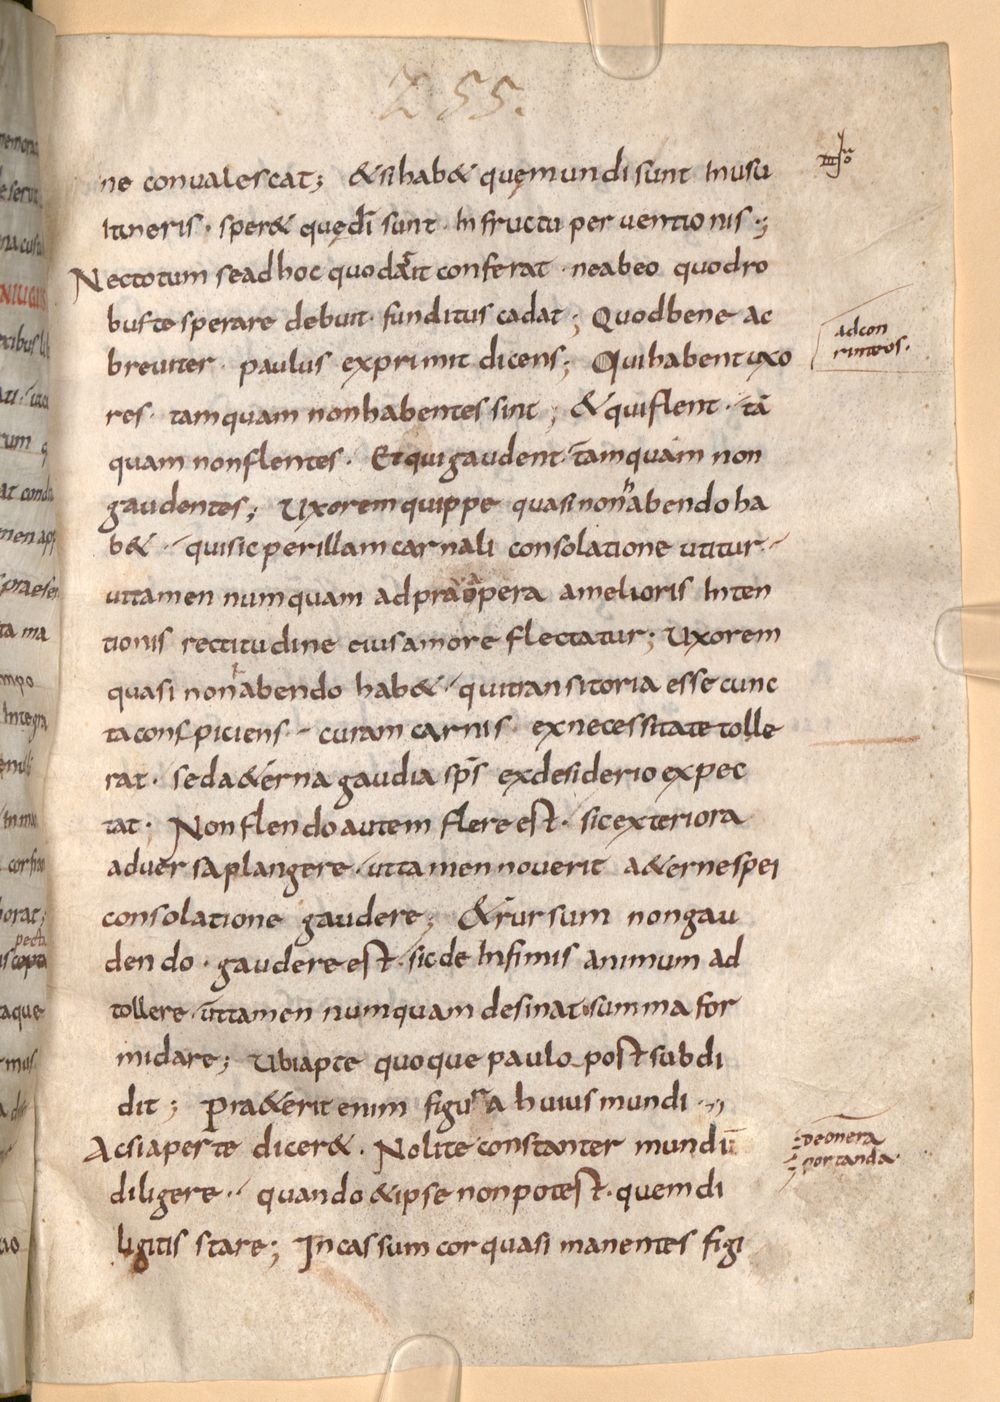 255.
ne convalescat; & si hab& quę mundi sunt in usu
itineris · sper& quę dī sunt · in fructu perventionis ·;
Nec totum se ad hoc quod agit conferat · ne ab eo quod ro
buste sperare debuit · funditus cadat; Quod bene ac
breviter · paulus exprimit dicens; Qui habent uxo
ad con
res · tamquam non habentes sint; & qui flent · tā
quam non flentes · Et qui gaudent · tamquam non
gaudentes; Uxorem quippe quasi non habendo ha
b& · qui sic per illam carnali consolatione utitur ·
ut tamen numquam ad prava opera a melioris inten
tionis rectitudine eius amore flectatur; Uxorem
quasi non habendo hab& · qui transitoria esse cunc
ta conspiciens · curam carnis · ex necessitate tolle
rat · sed a&erna gaudia sp̄s ex desiderio expec
tat · Non flendo autem flere est · sic exteriora
adversa plangere · ut tamen noverit a&erne spei
consolatione gaudere; & rursum non gau
dendo · gaudere est · sic de infimis animum ad
tollere · ut tamen numquam desinat summa for
midare; Ubi apte quoque paulo post subdi
dit; Pra&erit enim figura huius mundi ·,
Ac si aperte dicer& · Nolite constanter mundū
deonera
portanda·
diligere · quando & ipse non potest · quem di
ligitis stare; In cassum cor quasi manentes figi